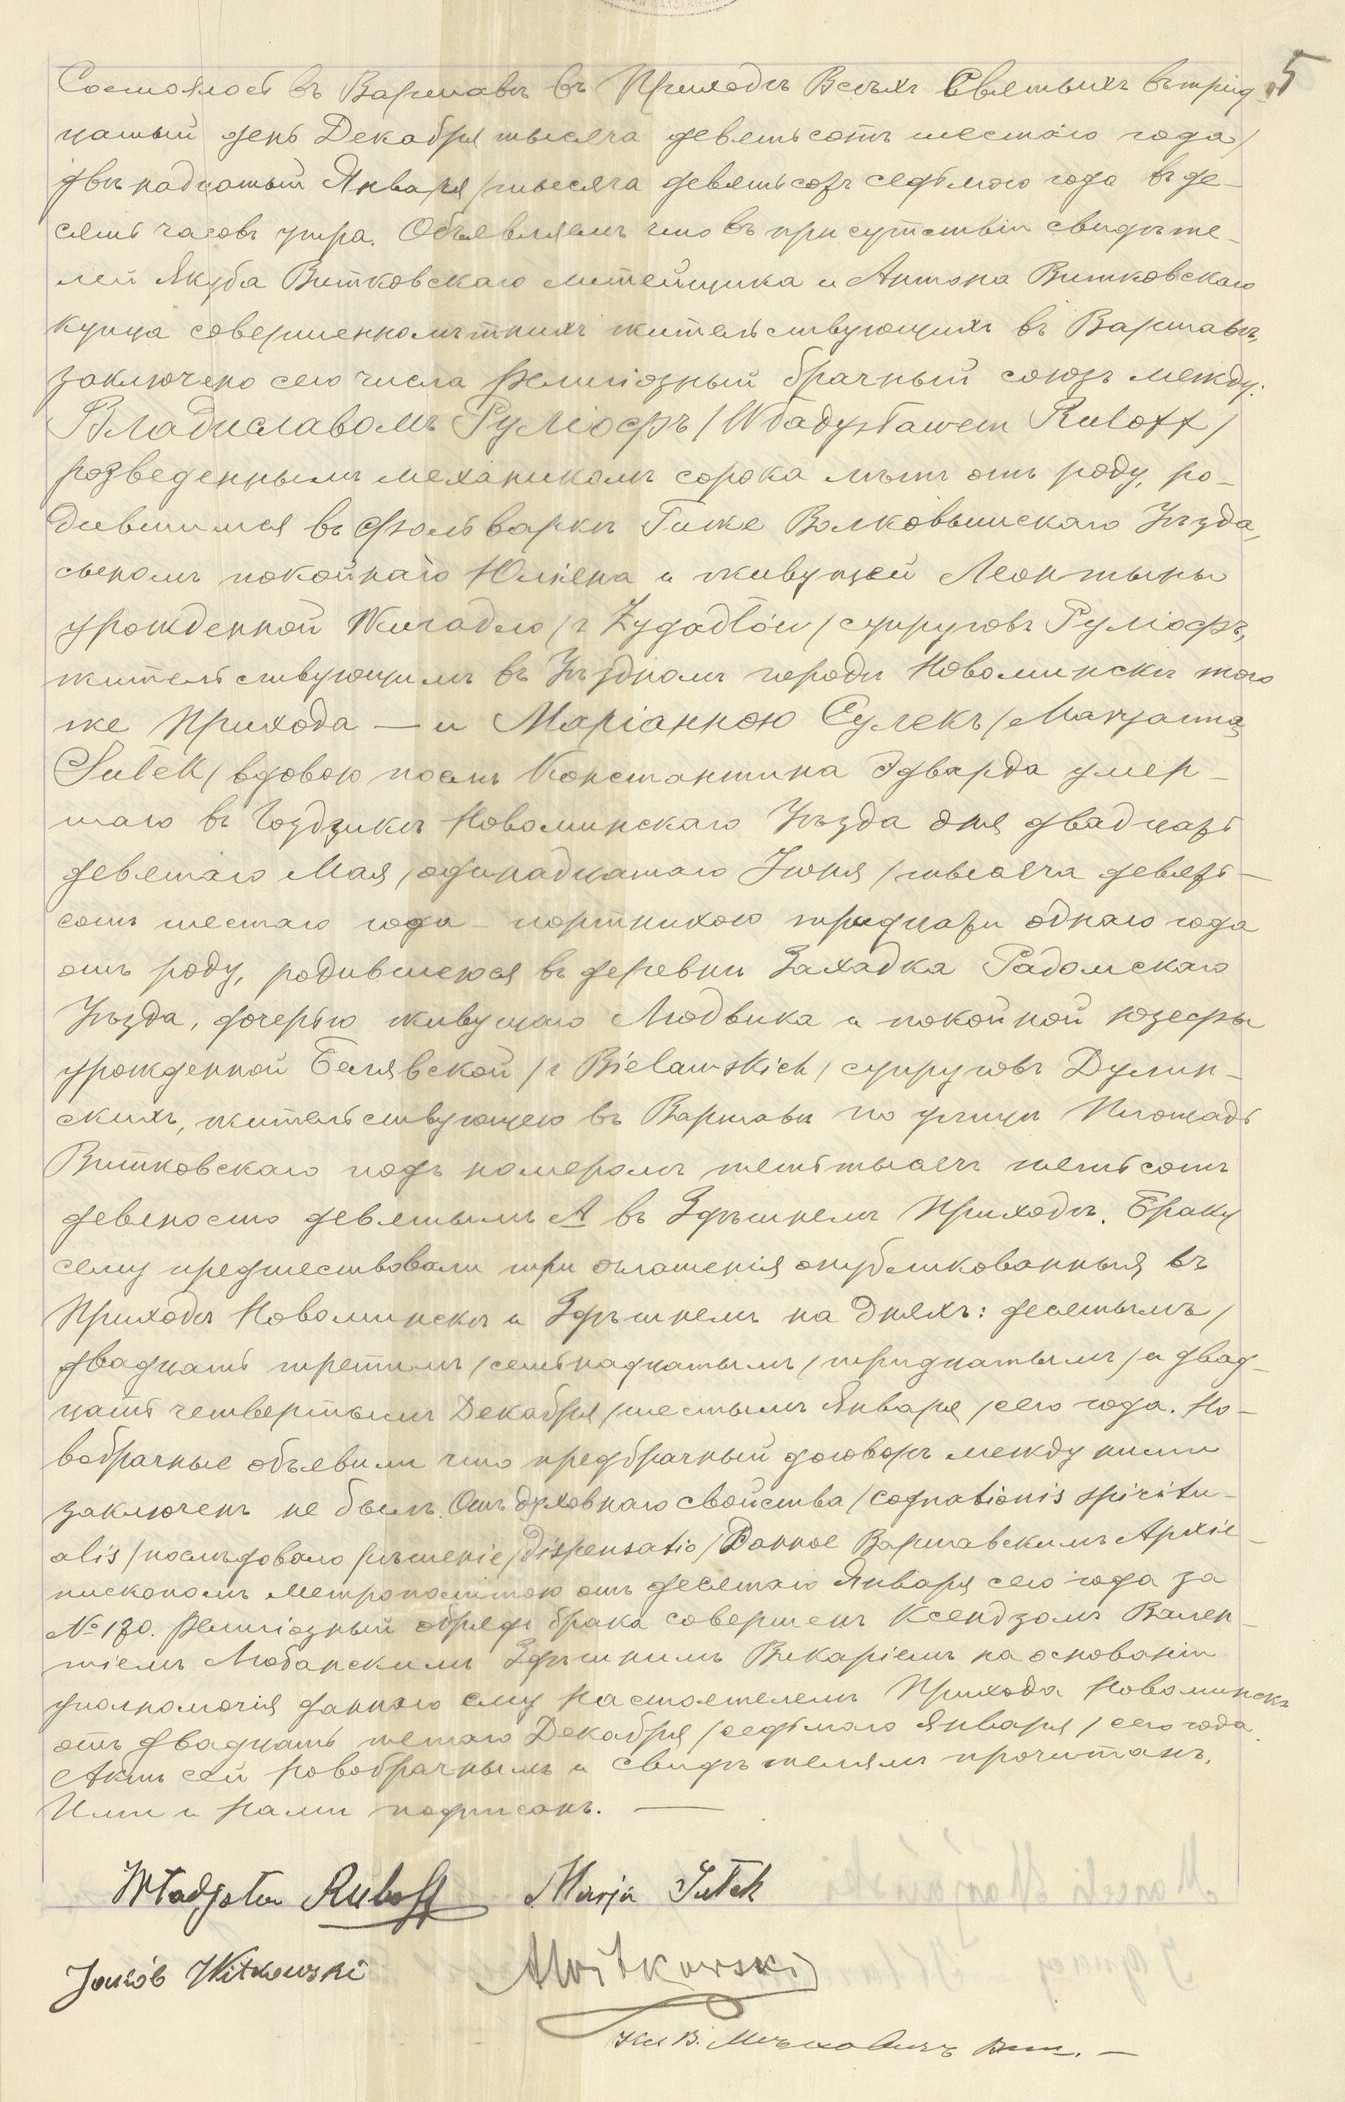 5
Состоялось въ Варшавѣ въ Приходѣ Всѣхъ Святыхъ въ трид-
цатый день Декабря тысяча девятьсотъ шестаго года /
двѣнадцатый Января / тысяча девятьсотъ седьмого года въ де-
сять часовъ утра. Объявляемъ что въ присутствіи свидѣте-
лей Якуба Витковскаго литейщика и Антона Витковскаго
купца совершеннолѣтнихъ жительствующихъ въ Варшавѣ,
заключено сего числа религіозный брачный союзъ между:
Владиславомъ Руліофъ / Władysławem Ruloff /
розведеннымъ механикомъ сорока лѣтъ отъ роду, ро-
дившимся въ Фольваркѣ Гиже Волковышскаго Уѣзда,
сыномъ покойнаго Юліена и живущей Леонтыны
урожденной Жигадло / z Żygadłów / супруговъ Руліофъ,
жительствующимъ въ Уѣздномъ городѣ Новоминскѣ того
же Прихода — и Маріанною Сулекъ / Maryanną
Sułek / вдовою послѣ Константина Эдварда умер-
шаго въ Гоздзикѣ Новоминскаго Уѣзда дня двадцать
девятаго Мая / одинадцатаго Іюня / тысяча девять-
сотъ шестаго года – портнихою тридцати одного года
отъ роду, родившеюся въ деревни Захадка Радомскаго
Уѣзда, дочерью живущаго Людвика и покойной Юзефы
урожденной Белявской / z Bielawskich / супруговъ Дулин-
скихъ, жительствующею въ Варшавѣ по улицѣ Площадь
Витковскаго подъ номеромъ шестьтысячъ шестьсотъ
девяносто девятымъ А въ Здѣшнемъ Приходѣ. Браку
сему предшествовали три оглашенія опубликованныя въ
Приходѣ Новоминскѣ и Здѣшнемъ на дняхъ: десятымъ /
двадцать третимъ / семьнадцатымъ / тридцатымъ / и двад-
цать четвертымъ Декабря / шестымъ Января / сего года. Но-
вобрачные объявили что предбрачный договоръ между ними
заключенъ не былъ. Отъ духовнаго свойства / cognationis spiritu-
alis / послѣдовало рѣшеніе / dispensatio / Данное Варшавскимъ Архіе-
пископомъ Метрополитою отъ десятаго Января сего года за
№ 130. Религіозный обрядъ брака совершенъ Ксендзомъ Вален-
тіемъ Любанскимъ Здѣшнимъ Викаріемъ на основаніи
уполномочія даннаго ему Настоятелемъ Прихода Новоминскъ
отъ двадцать пятаго Декабря / седьмого Января / сего года
Актъ сей новобрачнымъ и свидѣтелямъ прочитанъ,
Ими и Нами подписанъ. —
Władysław Ruloff Marja Sułek
Jakób Witkowski AWitkowski
Кс В.